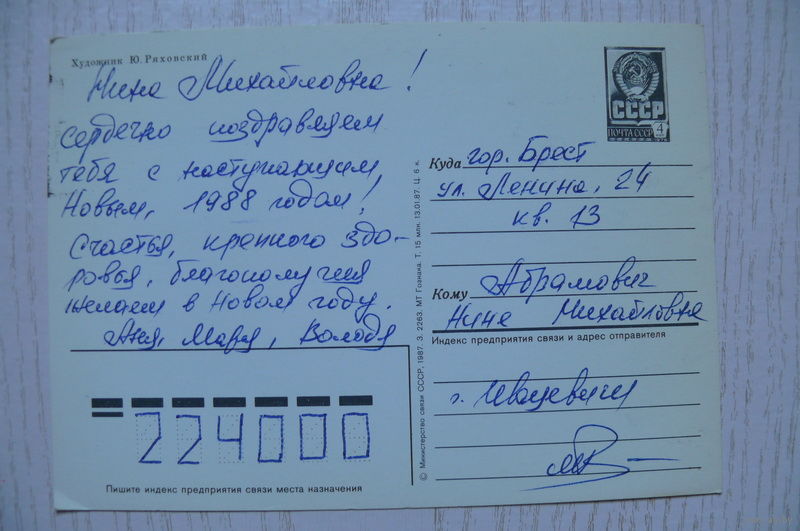 Художник Ю. Ряховский
Нина Михайловна!
сердечно поздравляем
тебя с наступающим,
Новым, 1988 годом!
Счастья, крепкого здо-
ровья, благополучия
желаем в Новом году.
Аня, Марья, Володя
224000
Пишите индекс предприятия связи места назначения
© Министерство связи СССР, 1987. З. 2263. МТ Гознака. Т. 15 млн. 13.01.87. Ц. 6 к.
СССР
ПОЧТА СССР 4
Куда гор. Брест
ул. Ленина, 24
кв. 13
Кому Абрамович
Нине Михайловне
Индекс предприятия связи и адрес отправителя
г. Ивацевичи